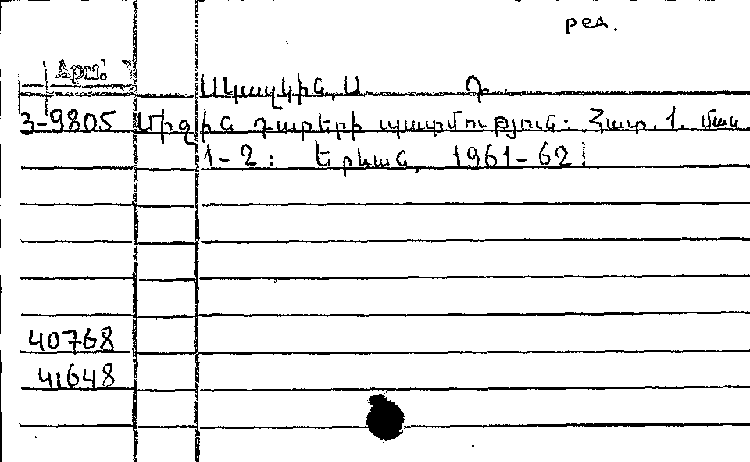 ред.
Арм.
Սկազկին, Ս. Դ.
3-9805 Միջին դարերի պատմություն: Հատ. 1. մաս
1-2: Երևան, 1961-62:
40768
41648